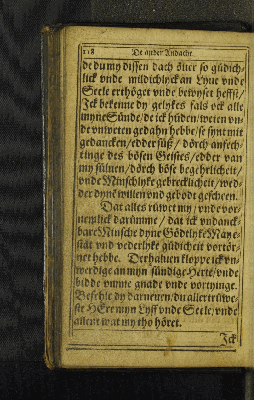 118 De ander Andacht.
de du my dissen dach öuer so güdich-
lick vnde mildichlyck an Lyue vnde
Seele ertöget vnde bewyset heffst/
Jck bekenne dy gelykes fals ock alle
myne Sünde/de ick hüden/weten vn-
de vnweten gedahn hebbe/se synt mit
gedancken/edder süß/dörch anfech-
tinge des bösen Geistes/edder van
my süluen/dörch böse begehrlicheit/
vnde Minschlyke gebrecklicheit/wed-
der dynē willen vnd gebodt gescheen.
Dat alles rüwet my/vnde vor-
nemlick darümme/dat ick vndanck-
bare Minsche dyne Gödtlyke Maye-
stät vnd vederlyke güdicheit vortör-
net hebbe. Derhaluen kloppe ick vn-
werdige an myn sündige Herte/vnde
bidde vmme gnade vnde vortyinge.
Befehle dy darneuen/du allertrüwe-
ste HEre myn Lyff vnde Seele/vnde
allent wat my tho höret.
Jck